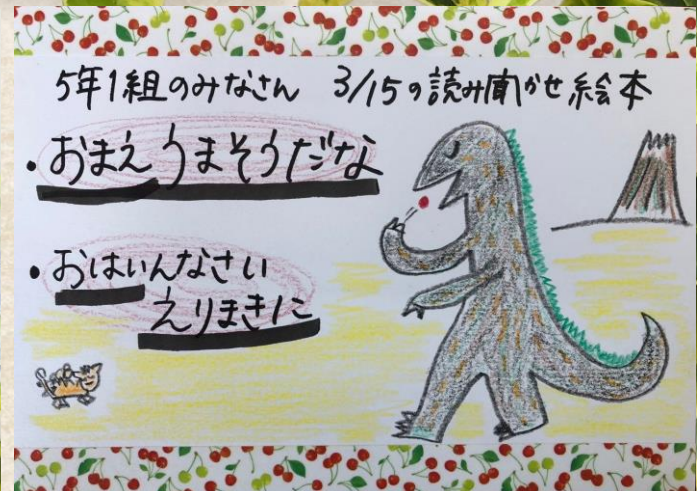 5年1組のみなさん 3/15の読み聞かせ絵本
・おまえうまそうだな
・おはいんなさい
えりまきに